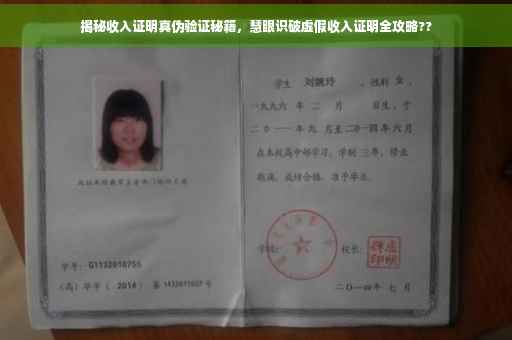 揭秘收入证明真伪验证秘籍，慧眼识破虚假收入证明全攻略??
学生 刘婉玲 ，性别 女 ，
一九九六 年 二 月 日生，于
二〇一一年九 月至二〇一四年 六 月
在本校高中部学习，学制 三 年，修业
期满，成绩合格，准予毕业。
学校：
校长：
学号：G1132010755
(高) 毕字 ( 2014 ) 第 1432011607 号
二〇一四年 七 月